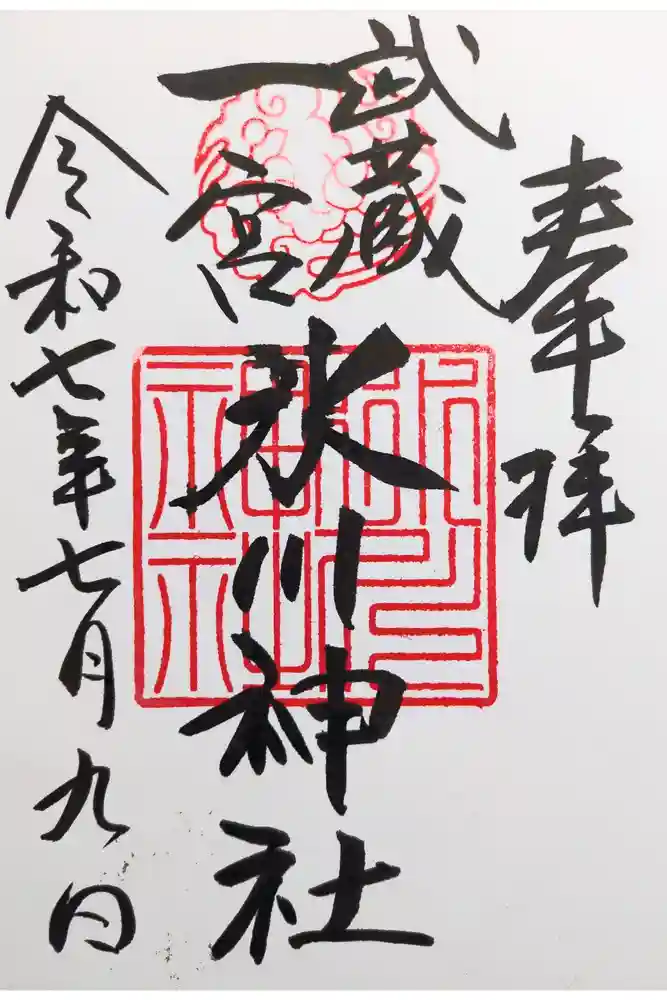 奉拝
武蔵
一宮
氷川神社
令和七年七月九日